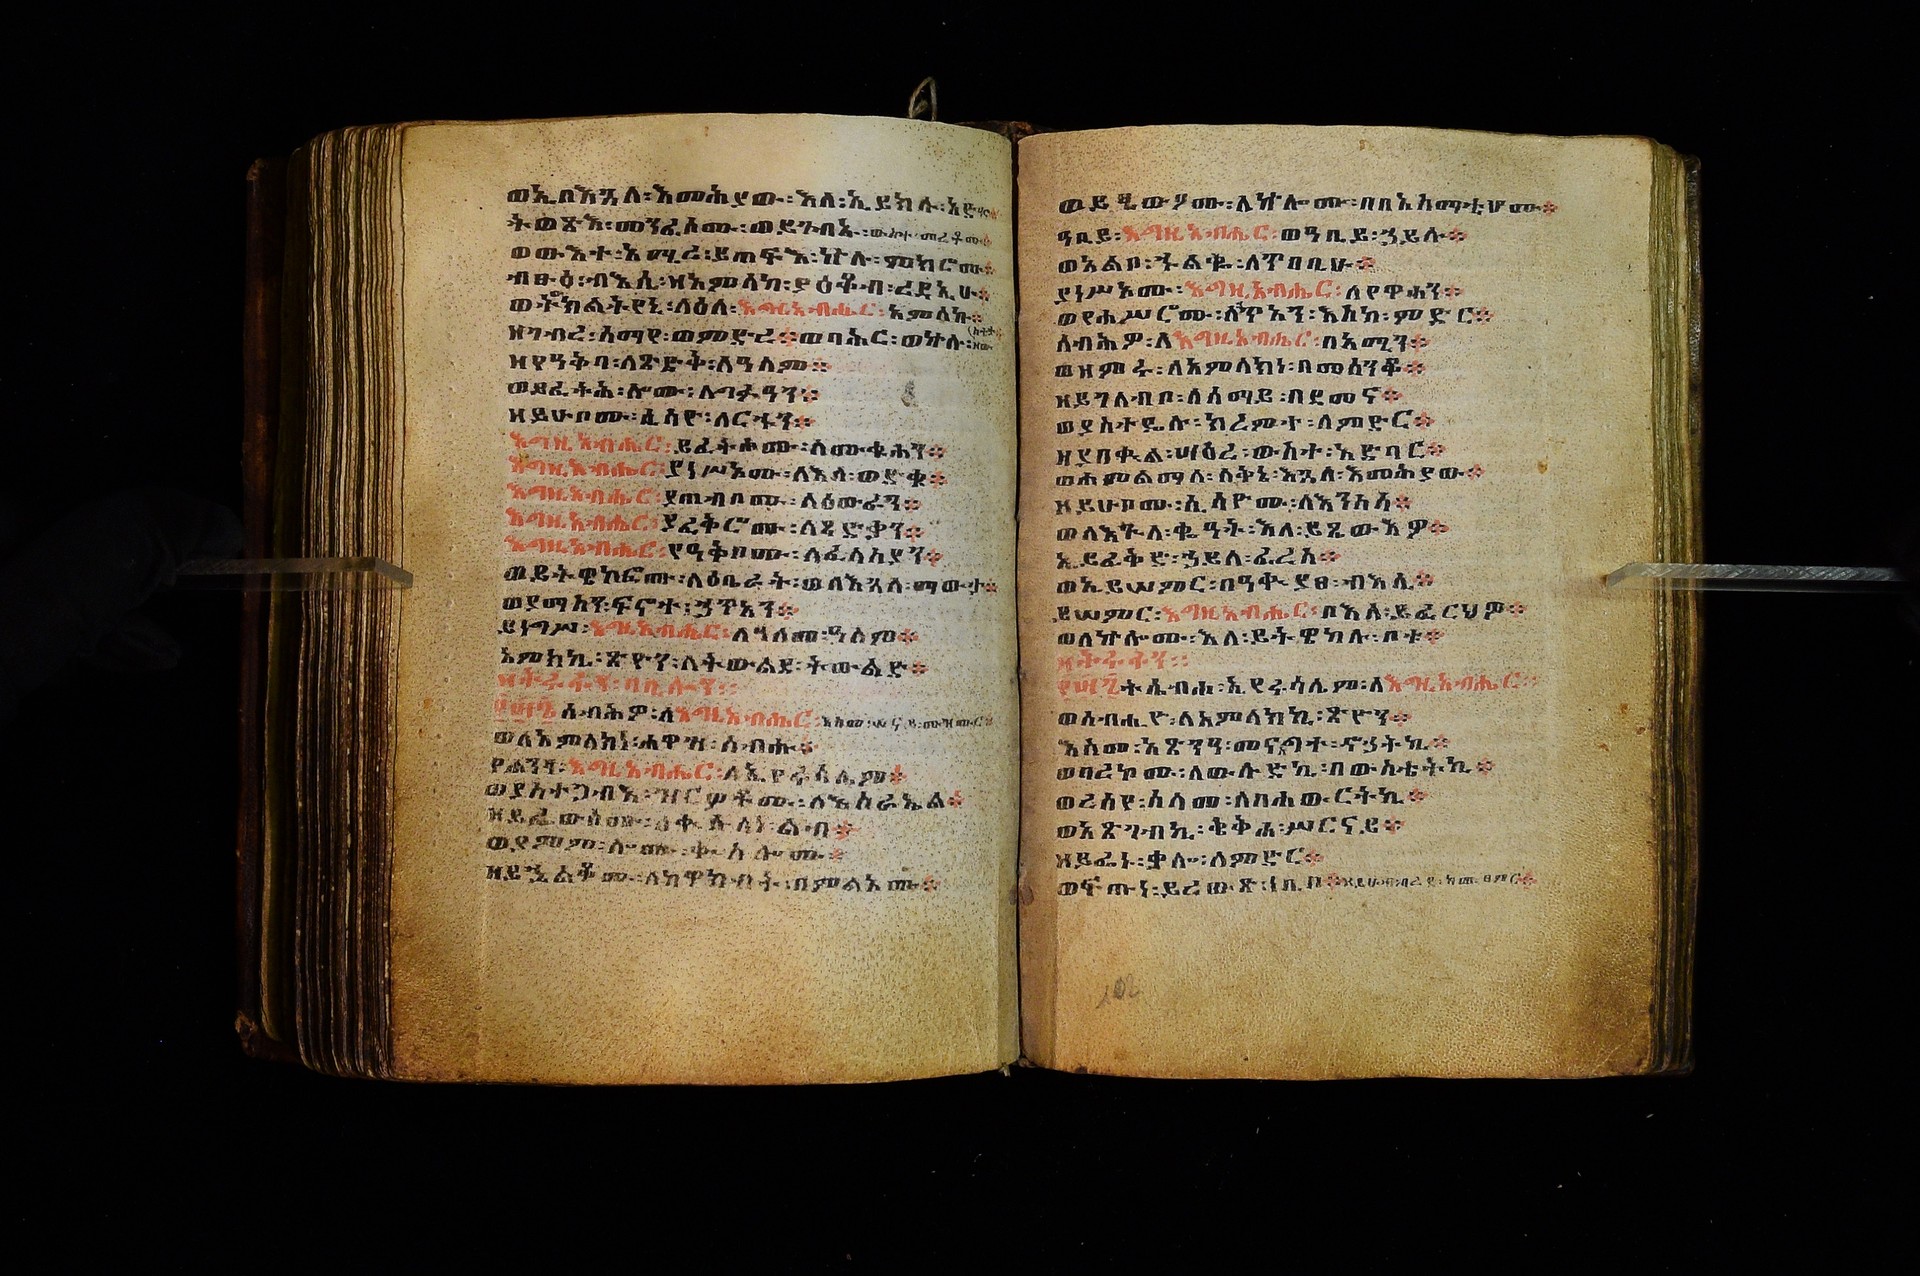 ወኢበእጓለ፡እመሕያው፡እለ፡ኢይክሉ፡አድኅኖ፨
ትወጽእ፡መንፈሶሙ፡ወይገብኡ፡ውስተ፡መሬቶሙ፨
ወውእተ፡አሚረ፡ይጠፍእ፡ኵሉ፡ምክሮሙ፨
ብፁዕ፡ብእሲ፡ዘአምላከ፡ያዕቆብ፡ረዳኢሁ፨
ወትውክልቱኒ፡ላዕለ፡እግዚአብሔር፡አምላኩ፨
ዘገብረ፡ሰማየ፡ወምድረ፨ወባሕር፡ወኵሉ፡ዘውስቴቱ
ዘየዓቅባ፡ለጽድቅ፡ለዓለም፨
ወይፈትሕ፡ሎሙ፡ለግፉዓን፨
ዘይሁቦሙ፡ሲሳየ፡ለርኁባን፨
እግዚአብሔር፡ይፈትሖሙ፡ለሙቁሐን፨
እግዚአብሔር፡ያነሥኦሙ፡ለእለ፡ወድቁ፨
እግዚአብሔር፡ያጠብቦሙ፡ለዕውራን፨
እግዚአብሔር፡ያፈቅሮሙ፡ለጻድቃን፨
እግዚአብሔር፡የዓቅቦሙ፡ለፈላስያን፨
ወይትዌከፎሙ፡ለዕቤራት፡ወለእጓለ፡ማውታ፨
ወያማስን፡ፍኖተ፡ኃጥአን፨
ይነግሥ፡እግዚአብሔር፡ለዓለመ፡ዓለም፨
አምላክኪ፡ጽዮን፡ለትውልደ፡ትውልድ፨
፻፵፮ ሰብሕዎ፡ለእግዚአብሔር፡እስመ፡ሠናይ፡መዝሙር፨
ወለአምላክነ፡ሐዋዝ፡ሰብሖ፨
የሐንጻ፡እግዚአብሔር፡ለኢየሩሳሌም፨
ወያስተጋብእ፡ዝርዎቶሙ፡ለእስራኤል፨
ዘይፌውሶሙ፡ለቍሱላነ፡ልብ፨
ወይፀምም፡ሎሙ፡ቍስሎሙ፨
ዘይኌልቆሙ፡ለከዋክብት፡በምልኦሙ፨
ወይጼውዖሙ፡ለኵሎሙ፡በበአስማቲሆሙ፨
ዓቢይ፡እግዚአብሔር፡ወዓቢይ፡ኃይሉ፨
ወአልቦ፡ኍልቈ፡ለጥበቢሁ፨
ያነሥኦሙ፡እግዚአብሔር፡ለየዋሃን፨
ወየሐሥሮሙ፡ለኃጥኣን፡እስከ፡ምድር፨
ሰብሕዎ፡ለእግዚአብሔር፡በአሚን፨
ወዘምሩ፡ለአምላክነ፡በመሰንቆ፨
ዘይገለብቦ፡ለሰማይ፡በደመና፨
ወያስተዴሉ፡ክረምተ፡ለምድር፨
ዘያበቍል፡ሣዕረ፡ውስተ፡አድባር፨
ወሐምልማለ፡ለቅኔ፡እጓለ፡እመሕያው፨
ዘይሁቦሙ፡ሲሳዮሙ፡ለእንስሳ፨
ወለእጕለ፡ቋዓት፡እለ፡ይጼውእዎ፨
ኢይፈቅድ፡ኃይለ፡ፈረስ፨
ወኢይሠምር፡በዓቍያፀ፡ብእሲ፨
ይሠምር፡እግዚአብሔር፡በእለ፡ይፈርህዎ፨
ወለኵሎሙ፡እለ፡ይትዌከሉ፡ቦቱ፨
፻፵፯ትሴብሖ፡ኢየሩሳሌም፡ለእግዚአብሔር፨
ወሰብሒዮ፡ለአምላክኪ፡ጽዮን፨
እስመ፡አጽንዓ፡መናስግተ፡ኆኃትኪ፨
ወባረኮሙ፡ለውሉድኪ፡በውስቴትኪ፨
ወረሰየ፡ሰላመ፡ለበሐውርትኪ፨
ወአጽገብኪ፡ቄቅሐ፡ሥርናይ፨
ዘይፌኑ፡ቃሎ፡ለምድር፨
ወፍጡነ፡ይረውጽ፡ነቢቡ፨
102